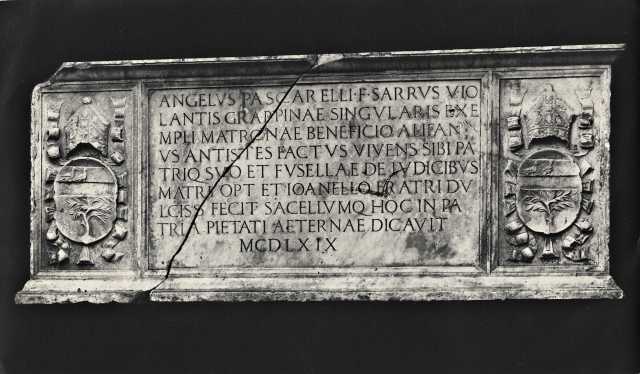 ANGELVS PASCARELLI·F·SARRVS VIO
LANTIS GRAPPINAE SINGVLARIS EXE
MPLI MATRONAE BENEFICIO ALIFAN
VS ANTISTES FACTVS VIVENS SIBI PA
TRIQ SVO ET FVSELLAE DE IVDICIBVS
MATRI OPT ET IOANELLO FRATRI DV
LCISS FECIT SACELLVMQ HOC IN PA
TRIA PIETATI AETERNAE DICAVIT
MCDLXIX